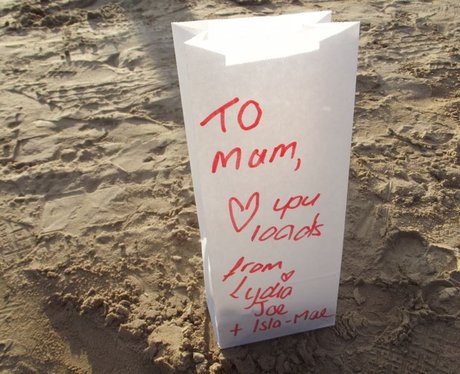 TO
mum,
♡ you
loads
from
Lydia
Joe
+ Isla-Mae